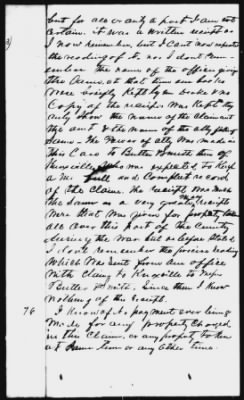 but for all or only a part I am not
certain. it was a written receipt as
I now remember, but I cant now repeat
the reading of it. nor I dont rem-
ember the name of the officer giving
the Same. at that time our books
were briefly Kept by our books was
Copy of the receipt was Kept they
only show the name of the claimant
the amt & the name of the atty
The Power of atty was made in
This Case to Butler & Smith then of
Knoxville who was expected to Keep
a full and Complete record
of the Claime. The receipt was much
the Same as a very great many receipts
were that was given for property taken
all over this part of the County
during the War but as before Stated
I dont remember the precise reading
Which Was Sent from our office
With Claim to Knoxville to Mess
Butler & Smith. Since then I know
nothing of the receipt.
76 I know of no payment ever being
Made for any property Charged
in this Claim, or any property taken
at Same time or any other time.